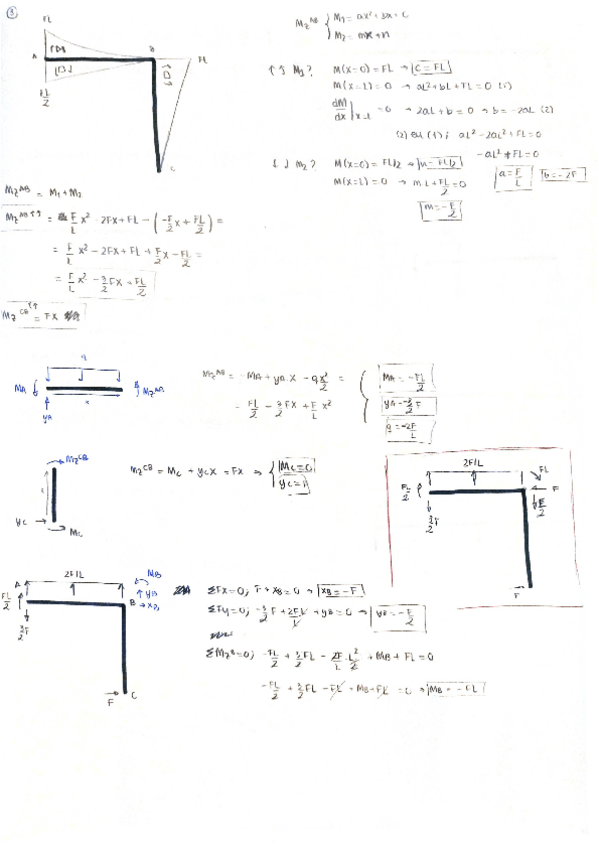 3
FL
A
B
FL
FL/2
C
Mz^AB { M1 = ax² + bx + c
M2 = mx + n
M1? M(x=0) = FL → c = FL
M(x=L) = 0 → aL² + bL + FL = 0 (1)
dM/dx |x=L = 0 → 2aL + b = 0 → b = -2aL (2)
(2) en (1); aL² - 2aL² + FL = 0
-aL² + FL = 0
a = F/L b = -2F
M2? M(x=0) = FL/2 → n = FL/2
M(x=L) = 0 → m·L + FL/2 = 0
m = -F/2
Mz^AB = M1 + M2
Mz^AB = F/L x² - 2Fx + FL - (-F/2 x + FL/2) =
= F/L x² - 2Fx + FL + F/2 x - FL/2 =
= F/L x² - 3/2 Fx + FL/2
Mz^CB = Fx
q
MA
Mz^AB
x
yA
Mz^AB = -MA + yA·x - qx²/2 =
= FL/2 - 3/2 Fx + F/L x²
MA = -FL/2
yA = -3/2 F
q = -2F/L
Mz^CB
yC
MC
Mz^CB = MC + yC x = Fx ⇒ { MC = 0
2F/L
FL/2
3/2 F
FL
F
F/2
F
A
2F/L
MB
yB
B → xB
FL/2
3/2 F
F
C
ΣFx=0; F + xB = 0 → xB = -F
ΣFy=0; -3/2 F + 2F/L·L + yB = 0 → yB = -F/2
ΣMz^B=0; -FL/2 + 3/2 FL - 2F/L·L²/2 + MB + FL = 0
-FL/2 + 3/2 FL - FL + MB + FL = 0 → MB = -FL